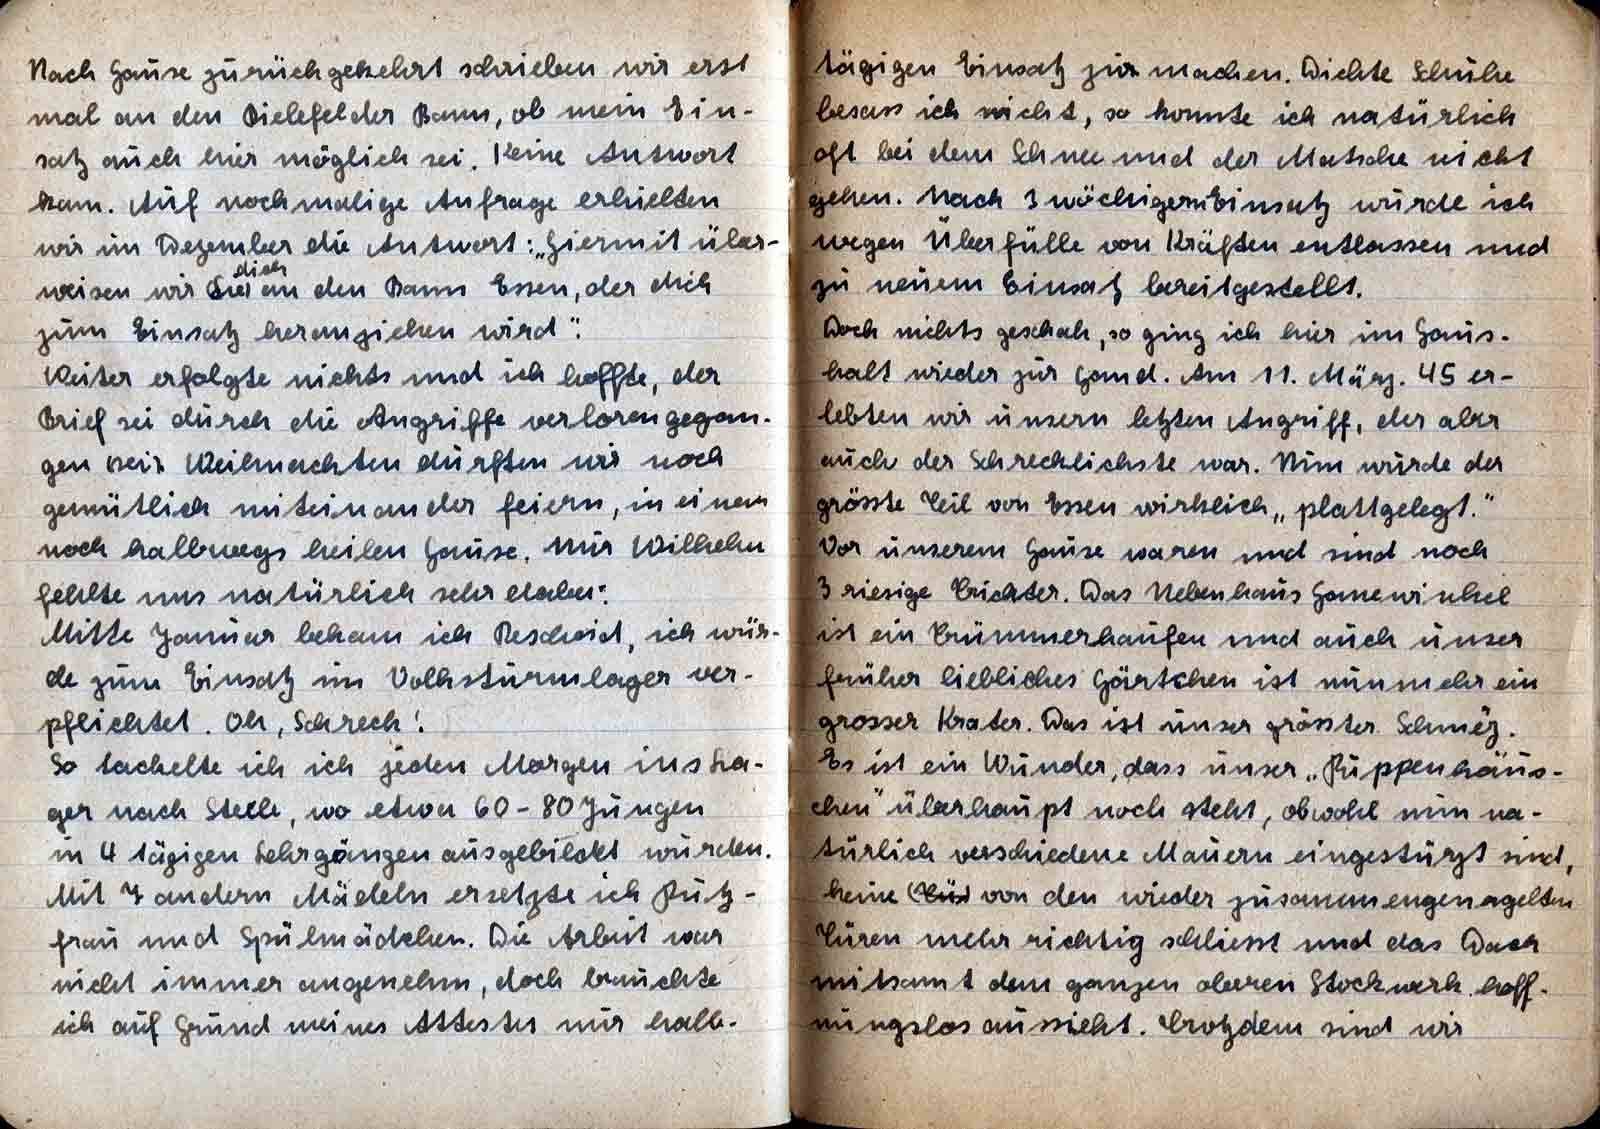 Nach Hause zurückgekehrt schrieben wir erst
mal an den Bielefelder Bann, ob mein Ein-
satz auch hier möglich sei. Keine Antwort
kam. Auf nochmalige Anfrage erhielten
wir im Dezember die Antwort: „Hiermit über-
weisen wir dich an den Bann Essen, der dich
zum Einsatz heranziehen wird".
Weiter erfolgte nichts und ich hoffte, der
Brief sei durch die Angriffe verlorengegan-
gen. Weihnachten durften wir noch
gemütlich miteinander feiern, in einem
noch halbwegs heilen Hause. Nur Wilhelm
fehlte uns natürlich sehr dabei.
Mitte Januar bekam ich Bescheid, ich wür-
de zum Einsatz im Volkssturmlager ver-
pflichtet. Oh, Schreck!
So tackelte ich ich jeden Morgen ins La-
ger nach Steele, wo etwa 60-80 Jungen
in 4 tägigen Lehrgängen ausgebildet wurden.
Mit 7 andern Mädeln ersetzte ich Putz-
frau und Spülmädchen. Die Arbeit war
nicht immer angenehm, doch brauchte
ich auf Grund meines Attestes nur halb-
tägigen Einsatz zu machen. Dichte Schuhe
besass ich nicht, so konnte ich natürlich
oft bei dem Schnee und der Matsche nicht
gehen. Nach 3 wöchigem Einsatz wurde ich
wegen Überfülle von Kräften entlassen und
zu neuem Einsatz bereitgestellt.
Doch nichts geschah, so ging ich hier im Haus-
halt wieder zur Hand. Am 11. März. 45 er-
lebten wir unsern letzten Angriff, der aber
auch der Schrecklichste war. Nun wurde der
grösste Teil von Essen wirklich „plattgelegt."
Vor unserem Hause waren und sind noch
3 riesige Trichter. Das Nebenhaus Homewinkel
ist ein Trümmerhaufen und auch unser
früher liebliches Gärtchen ist nunmehr ein
grosser Krater. Das ist unser grösster Schmerz.
Es ist ein Wunder, dass unser „Puppenhäus-
chen" überhaupt noch steht, obwohl nun na-
türlich verschiedene Mauern eingestürzt sind,
keine von den wieder zusammengenagelten
Türen mehr richtig schliesst und das Dach
mitsamt dem ganzen oberen Stockwerk hoff-
nungslos aussieht. Trotzdem sind wir